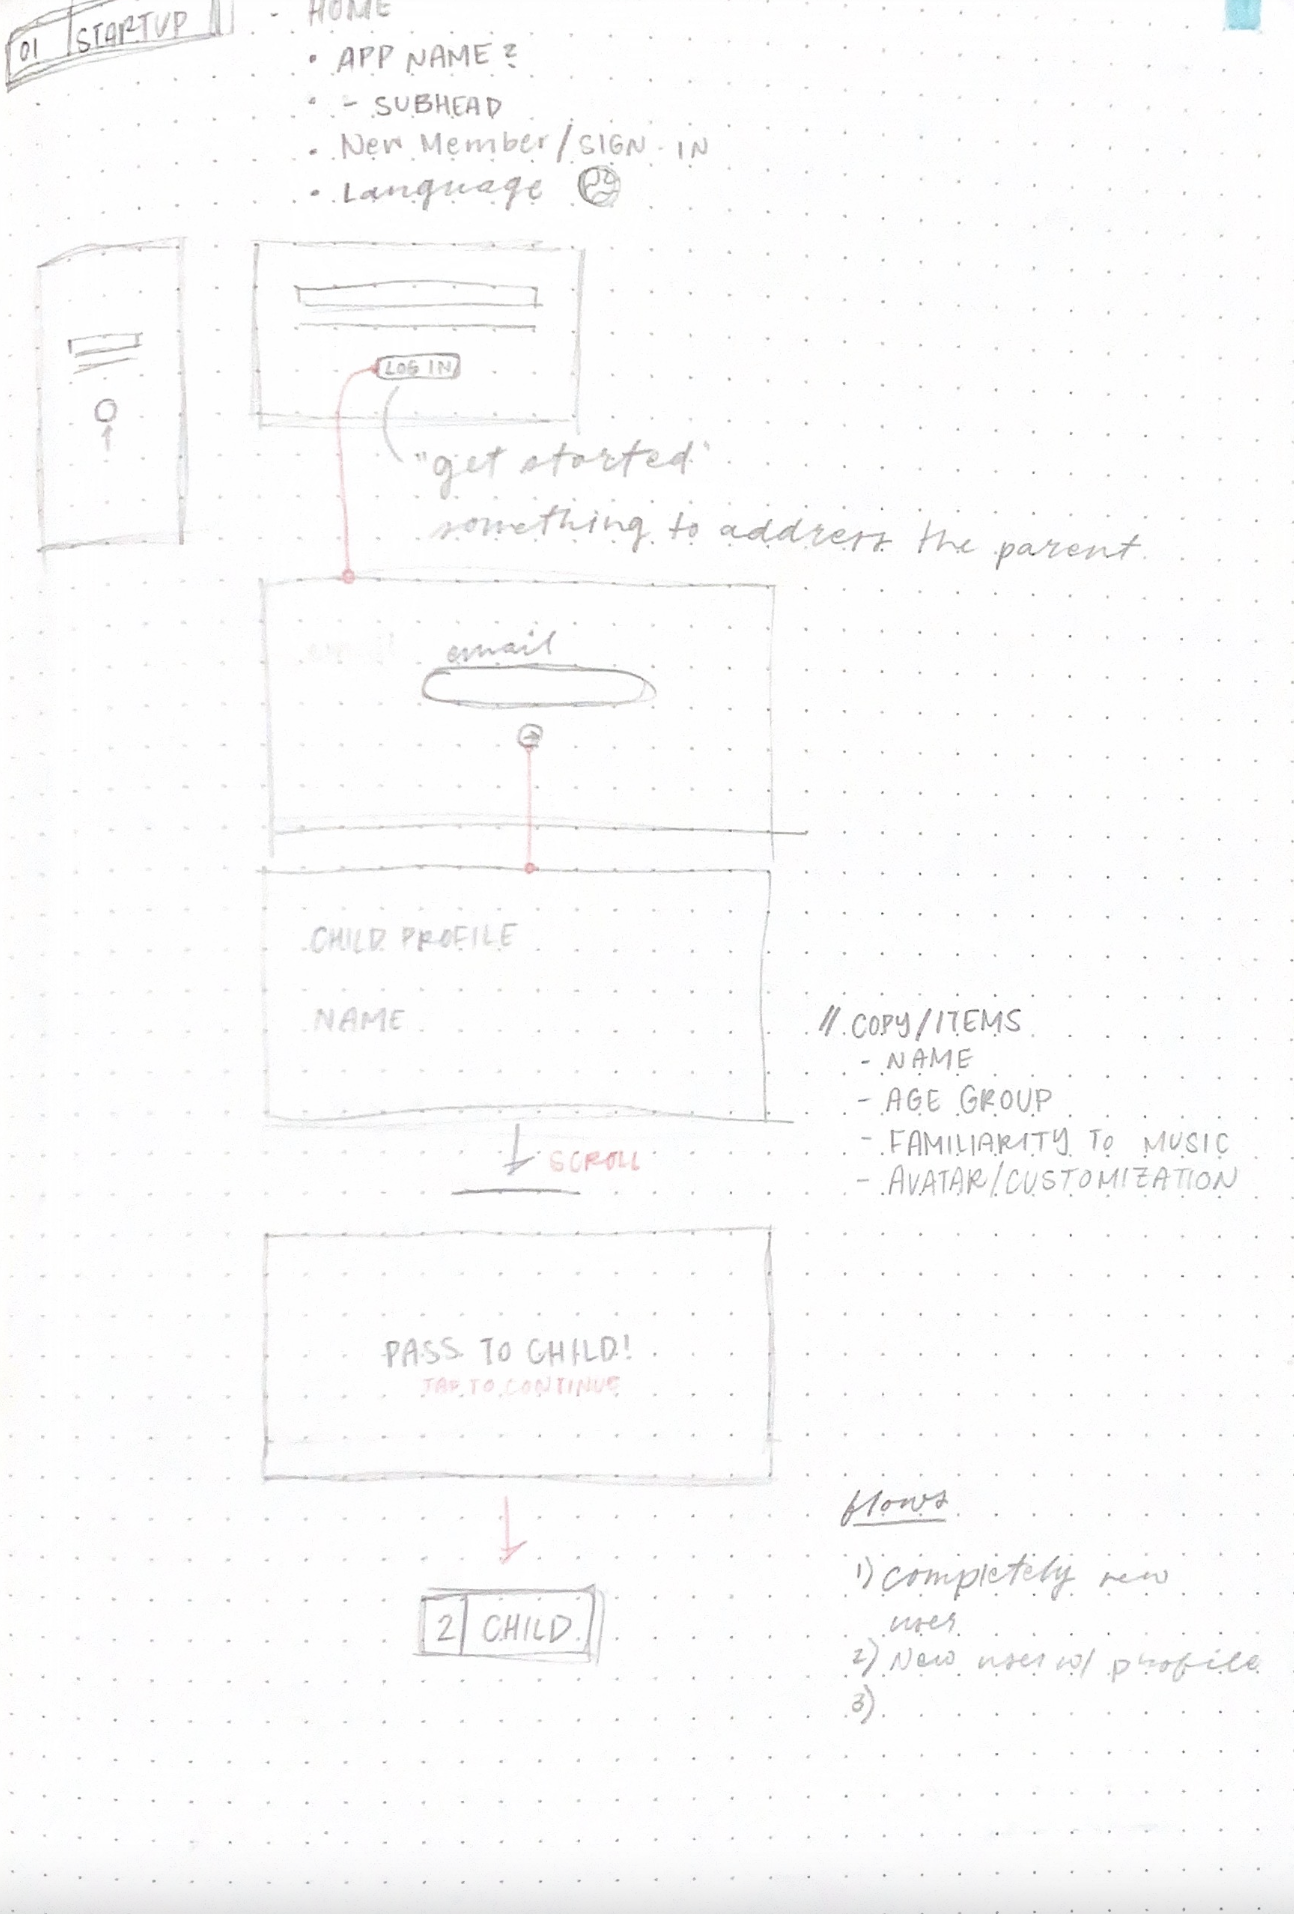 01 STARTUP
- HOME
• APP NAME?
• - SUBHEAD
• New Member/SIGN IN
• Language
LOG IN
"get started"
something to address the parent
email
CHILD PROFILE
NAME
// COPY/ITEMS
- NAME
- AGE GROUP
- FAMILIARITY TO MUSIC
- AVATAR/CUSTOMIZATION
SCROLL
PASS TO CHILD!
TAP TO CONTINUE
flows
1) completely new
user
2) New user w/ profile
3)
2 CHILD